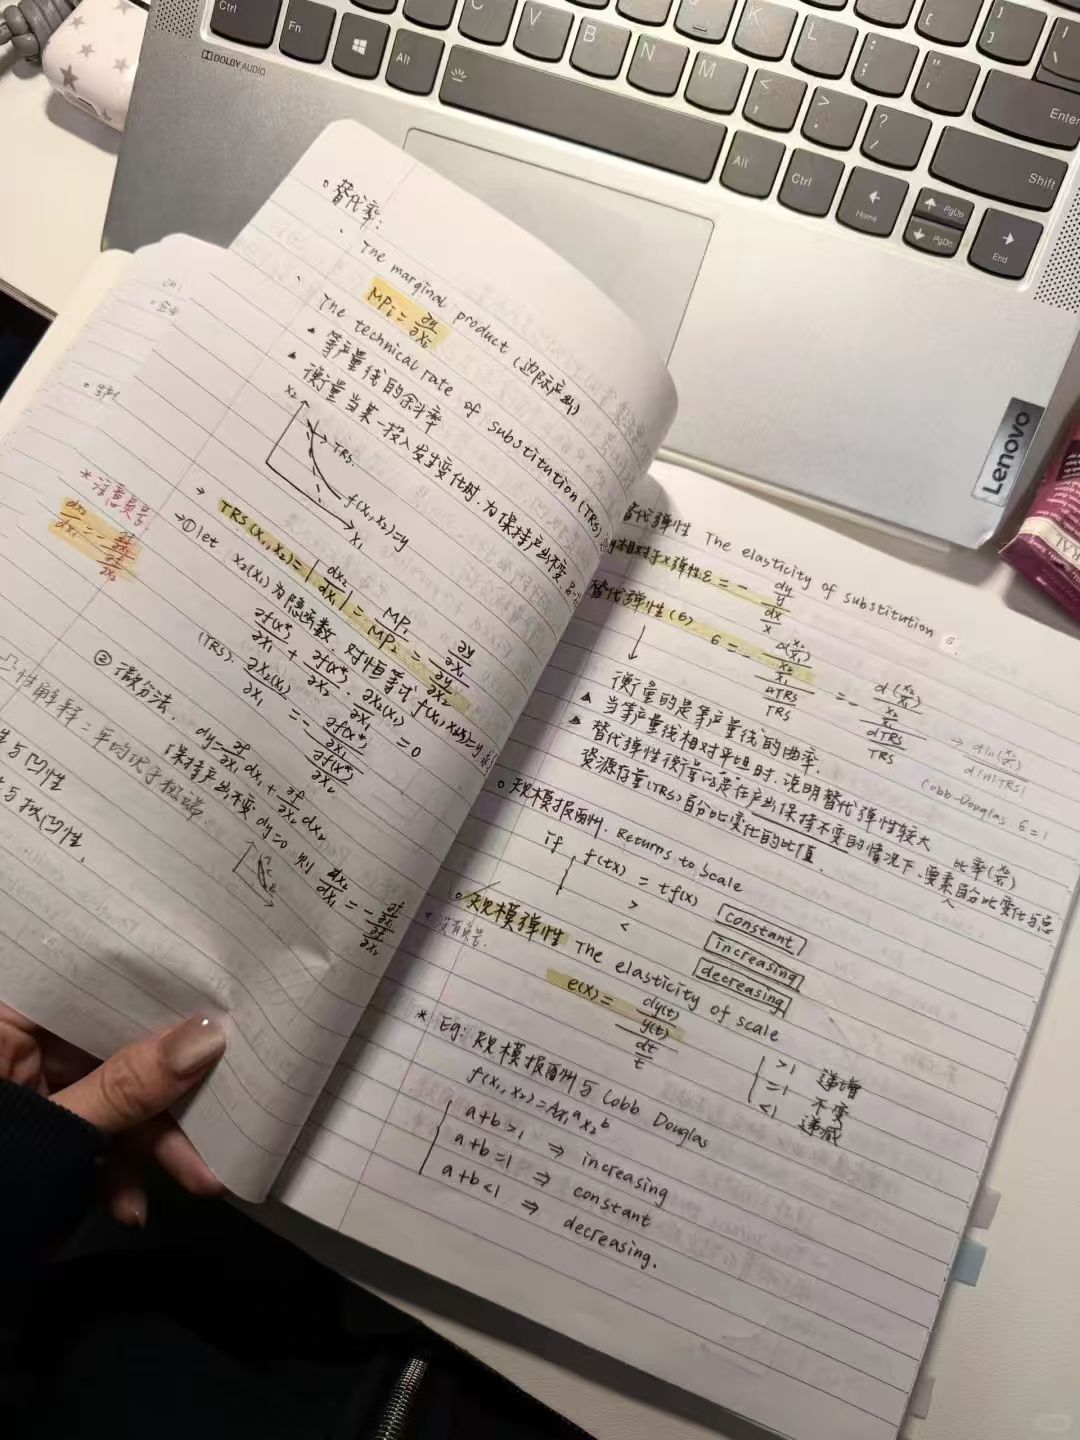 Ctrl
Fn
Alt
C
V
B
N
M
J
K
L
Enter
Shift
Alt
Ctrl
Home
PgUp
PgDn
End
DOLBY AUDIO
Lenovo
替代率:
The marginal product (边际产出)
MPi = ∂y/∂xi
The technical rate of substitution (TRS)
等产量线的斜率
衡量当某一投入发生变化时,为保持产出不变,
x2
TRS.
f(x1,x2)=y
x1
*注意负号
dx2/dx1 = - ∂f/∂x1 / ∂f/∂x2
TRS(x1,x2) = |dx2/dx1| = MP1/MP2 = ∂y/∂x1 / ∂y/∂x2
→①let x2(x1)为隐函数,对恒等式 f(x1,x2(x1))=y
∂f(x*)/∂x1 + ∂f(x*)/∂x2 · ∂x2(x1)/∂x1 = 0
(TRS). ∂x2(x1)/∂x1 = - ∂f(x*)/∂x1 / ∂f(x*)/∂x2
②微分法.
dy = ∂f/∂x1 dx1 + ∂f/∂x2 dx2
保持产出不变 dy=0 则 dx2/dx1 = - ∂f/∂x1 / ∂f/∂x2
性与凹性
与拟凹性,
替代弹性 The elasticity of substitution 6.
y相对于x弹性ε = - dy/y / dx/x
替代弹性(6) 6 = - d(x2/x1) / x2/x1 / dTRS/TRS = - d(x2/x1) / x2/x1 / dTRS/TRS → dln(x2/x1) / dln|TRS|
Cobb-Douglas 6=1
衡量的是等产量线的曲率.
▲ 当等产量线相对平坦时,说明替代弹性较大
▲ 替代弹性衡量的是在产出保持不变的情况下,要素比率(x2/x1)百分比变化与
资源存量(TRS)百分比变化的比值
规模报酬. Returns to Scale
if f(tx) = tf(x) constant
> increasing
< decreasing
规模弹性 The elasticity of scale
*没有负号.
e(x) = dy(t)/y(t) / dt/t
>1 递增
=1 不变
<1 递减
* Eg: 规模报酬与 Cobb Douglas
f(x1,x2)=Ax1^a x2^b
a+b>1 ⇒ increasing
a+b=1 ⇒ constant
a+b<1 ⇒ decreasing.